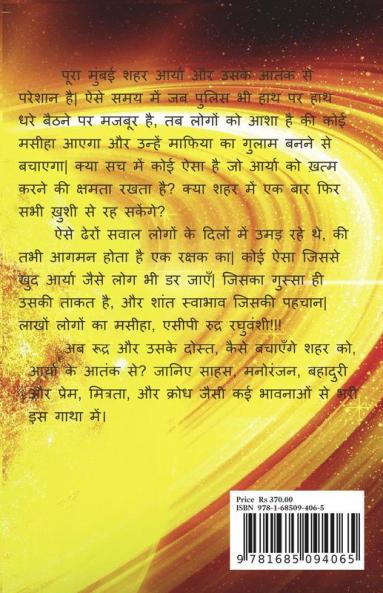 पूरा मुंबई शहर आर्या और उसके आतंक से
परेशान है| ऐसे समय में जब पुलिस भी हाथ पर हाथ
धरे बैठने पर मजबूर है, तब लोगों को आशा है की कोई
मसीहा आएगा और उन्हें माफिया का गुलाम बनने से
बचाएगा| क्या सच में कोई ऐसा है जो आर्या को ख़त्म
करने की क्षमता रखता है? क्या शहर में एक बार फिर
सभी ख़ुशी से रह सकेंगे?
ऐसे ढेरों सवाल लोगों के दिलों में उमड़ रहे थे, की
तभी आगमन होता है एक रक्षक का| कोई ऐसा जिससे
खुद आर्या जैसे लोग भी डर जाएँ| जिसका गुस्सा ही
उसकी ताकत है, और शांत स्वाभाव जिसकी पहचान|
लाखों लोगों का मसीहा, एसीपी रुद्र रघुवंशी!!!
अब रूद्र और उसके दोस्त, कैसे बचाएँगे शहर को,
आर्या के आतंक से? जानिए साहस, मनोरंजन, बहादुरी
और प्रेम, मित्रता, और क्रोध जैसी कई भावनाओं से भरी
इस गाथा में।
Price Rs 370.00
ISBN 978-1-68509-406-5
9 781685 094065